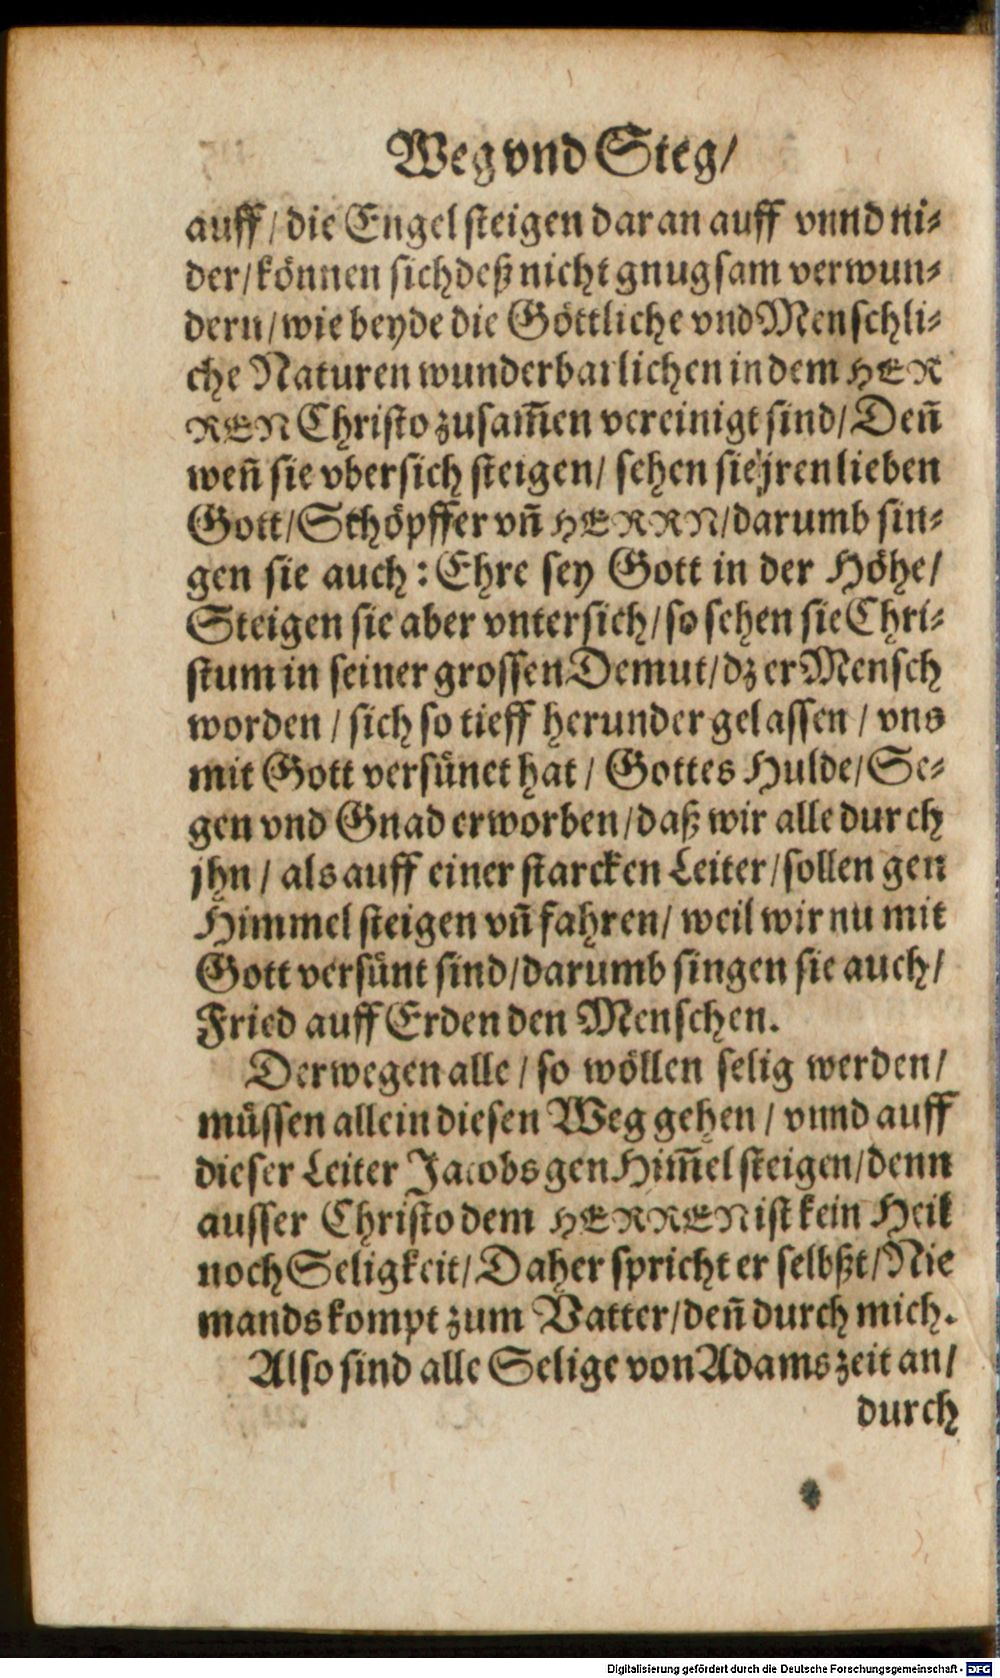 Weg vnd Steg/
auff/ die Engel steigen daran auff vnnd ni-
der/ können sich deß nicht gnugsam verwun-
dern/ wie beyde die Göttliche vnd Menschli-
che Naturen wunderbarlichen in dem HER
REN Christo zusam̃en vereinigt sind/ Deñ
weñ sie vbersich steigen/ sehen sie jren lieben
Gott/ Schöpffer vñ HERRN/ darumb sin-
gen sie auch: Ehre sey Gott in der Höhe/
Steigen sie aber vntersich/ so sehen sie Chri-
stum in seiner grossen Demut/ dz er Mensch
worden/ sich so tieff herunder gelassen/ vns
mit Gott versünet hat/ Gottes Hulde/ Se-
gen vnd Gnad erworben/ daß wir alle durch
jhn/ als auff einer starcken Leiter/ sollen gen
Himmel steigen vñ fahren/ weil wir nu mit
Gott versünt sind/ darumb singen sie auch/
Fried auff Erden den Menschen.
Derwegen alle/ so wöllen selig werden/
müssen allein diesen Weg gehen/ vnnd auff
dieser Leiter Jacobs gen Him̃el steigen/ denn
ausser Christo dem HERREN ist kein Heil
noch Seligkeit/ Daher spricht er selbßt/ Nie
mands kompt zum Vatter/ deñ durch mich.
Also sind alle Selige von Adams zeit an/
durch
Digitalisierung gefördert durch die Deutsche Forschungsgemeinschaft - DFG